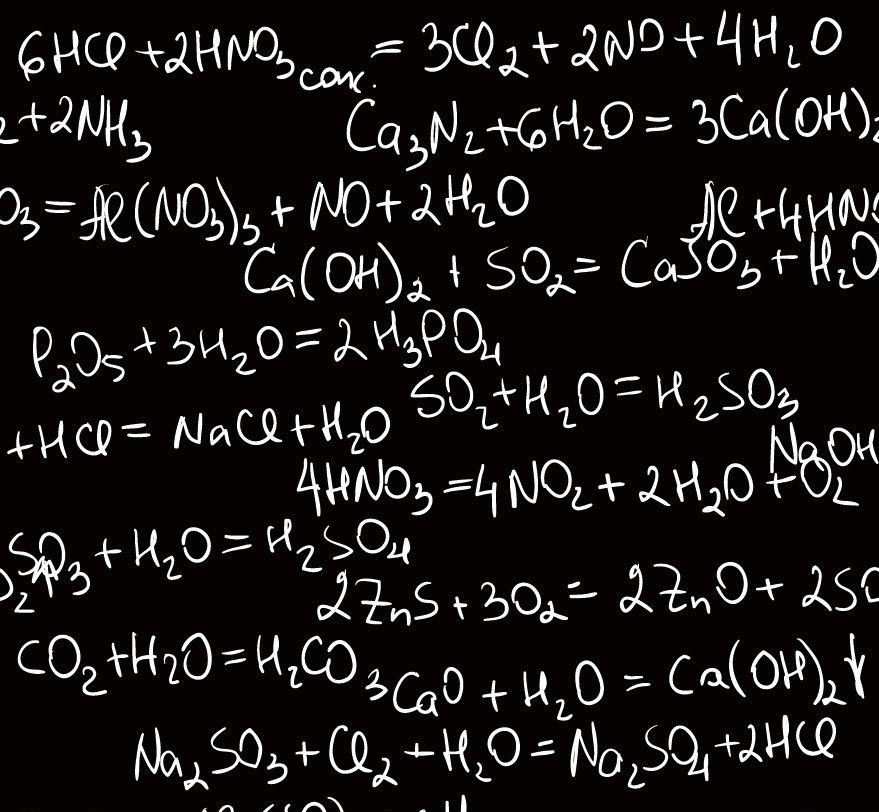 6HCl + 2HNO₃ конц. = 3Cl₂ + 2NO + 4H₂O
₂ + 2NH₃
Ca₃N₂ + 6H₂O = 3Ca(OH)₂
O₃ = Al(NO₃)₃ + NO + 2H₂O
Al + 4HNO
Ca(OH)₂ + SO₂ = CaSO₃ + H₂O
P₂O₅ + 3H₂O = 2H₃PO₄
SO₂ + H₂O = H₂SO₃
+ HCl = NaCl + H₂O
NaOH
4HNO₃ = 4NO₂ + 2H₂O + O₂
SO₃ + H₂O = H₂SO₄
2ZnS + 3O₂ = 2ZnO + 2SO
CO₂ + H₂O = H₂CO₃
CaO + H₂O = Ca(OH)₂↓
Na₂SO₃ + Cl₂ + H₂O = Na₂SO₄ + 2HCl